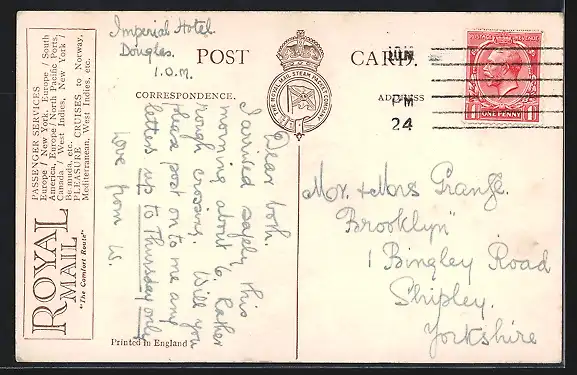 PASSENGER SERVICES
Europe / New York. Europe / South
America, Europe / North Pacific Ports.
Canada / West Indies, New York /
Bermuda, etc.
PLEASURE CRUISES to Norway,
Mediterranean, West Indies, etc.
ROYAL
MAIL
"The Comfort Route"
Imperial Hotel
Douglas.
I.O.M.
POST CARD.
THE ROYAL MAIL STEAM PACKET COMPANY
CORRESPONDENCE.
ADDRESS
Dear both.
I arrived safely this
morning about 6. Rather
rough crossing. Will you
please post on to me any
letters up to Thursday only
Love from W.
JUN
PM
24
POSTAGE REVENUE
1 ONE PENNY 1
Mr. & Mrs Grange.
"Brooklyn"
1 Bingley Road
Shipley.
Yorkshire
Printed in England